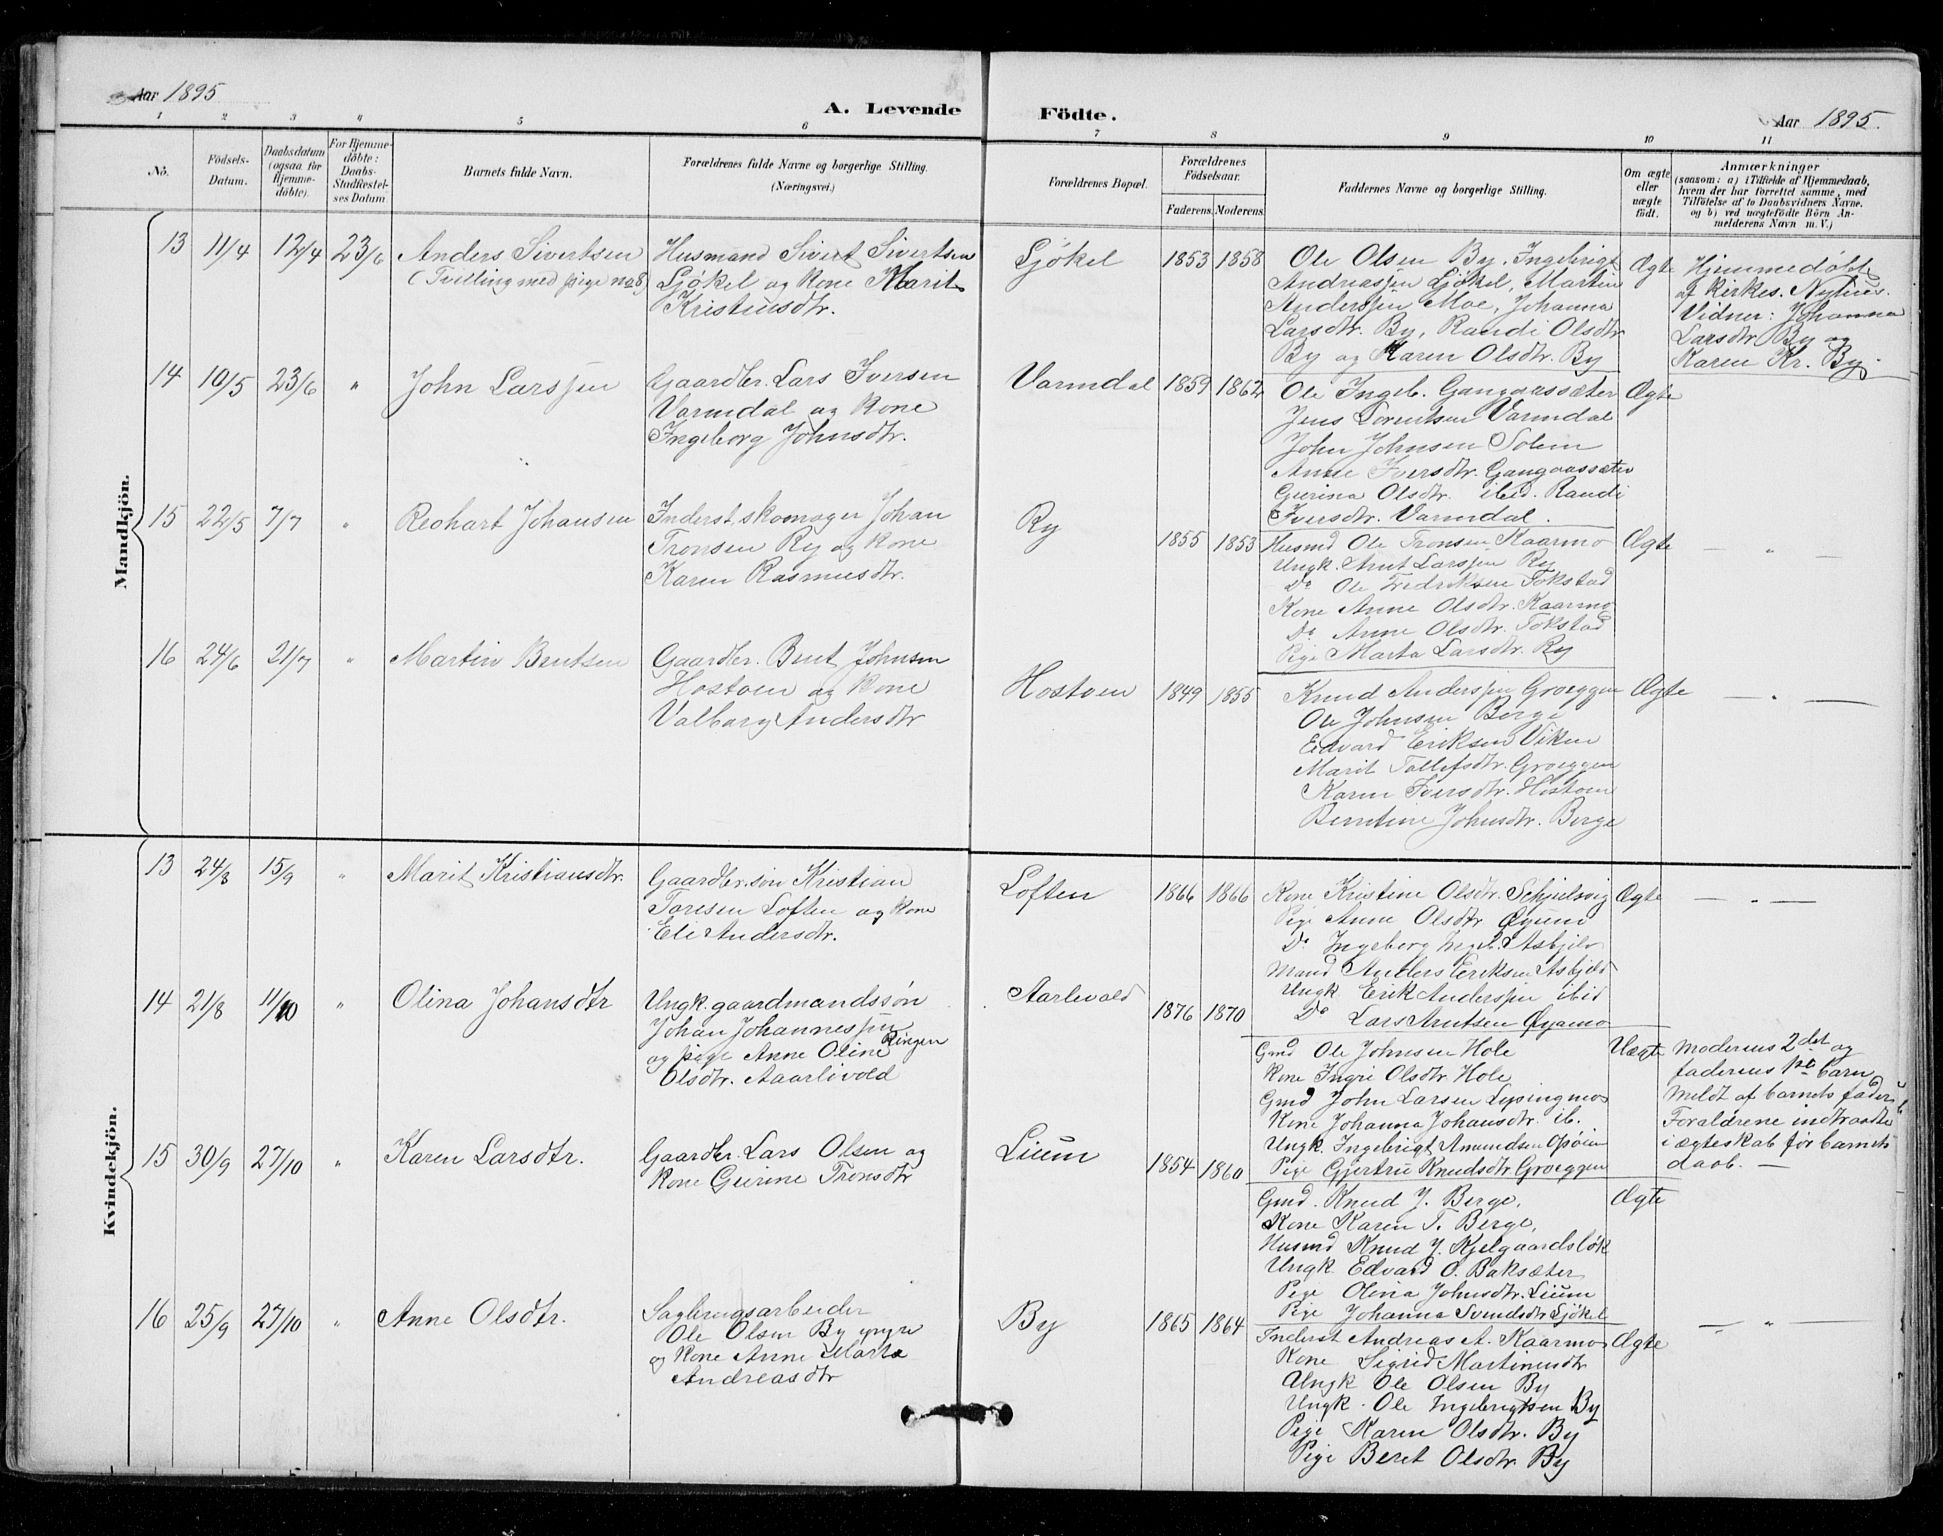 Aar 1895
A. Levende
Födte.
Aar 1895.
1 2 3 4 5 6 7 8 9 10 11
No.
Födsels-Datum.
Daabsdatum (ogsaa for Hjemme-döbte).
For Hjemme-döbte: Daabs-Stadfæstel-ses Datum.
Barnets fulde Navn.
Forældrenes fulde Navne og borgerlige Stilling. (Næringsvei.)
Forældrenes Bopæl.
Forældrenes Födselsaar.
Faderens. Moderens.
Faddernes Navne og borgerlige Stilling.
Om ægte eller uægte födt.
Anmærkninger
(saasom: a) i Tilfælde af Hjemmedaab,
hvem der har forrettet samme, med
Tilföielse af to Daabsvidners Navne.
og b) ved uægtefödte Börn An-
melderens Navn m. V.)
Mandkjön.
13 11/4 12/4 23/6
Anders Sivertsen
(Tvilling med pige no 8)
Husmand Sivert Sivertsen
Sjökel og kone Marit
Kristiansdtr.
Sjökel
1853 1858
Ole Olsen By, Ingebrigt
Andreassen Sjökel, Martin
Anderssen Moe, Johanna
Larsdtr. By, Randi Olsdtr
By og Karen Olsdtr. By
Ægte
Hjemmedöbt
af kirkes. Nyhus.
Vidner: Johanna
Larsdtr By og
Karen Kr. By.
14 10/5 23/6 "
John Larssen
Gaardbr. Lars Iversen
Varmdal og kone
Ingeborg Johnsdtr.
Varmdal
1859 1862
Ole Ingeb. Gangaassæter
Jens Lorentsen Varmdal
John Johnsen Solem
Anne Iversdtr. Gangaassæter
Gurina Olsdtr. ibid. Randi
Iversdtr. Varmdal.
Ægte
15 22/5 7/7 "
Reohart Johansen
Inderst, skomager Johan
Tronsen Ry og kone
Karen Rasmusdtr.
Ry
1855 1853
Husmd Ole Tronsen Kaarmo
Ungk. Arnt Larssen Ry
Do Ole Fredriksen Tokstad
Kone Anne Olsdtr. Kaarmo
Do Anne Olsdtr. Tokstad
Pige Marta Larsdtr. Ry
Ægte
— " —
16 24/6 21/7 "
Martin Brutsen
Gaardbr. Brut Johnsen
Hostoen og kone
Valborg Andersdtr
Hostoen
1849 1855
Knud Anderssen Groeggen
Ole Johnsen Berge
Edvard Eriksen Viken
Marit Tollefsdtr. Groeggen
Karen Iversdtr. Hostoen
Berntine Johnsdtr. Berge
Ægte
— " —
Kvindekjön.
13 24/8 15/9 "
Marit Kristiansdtr.
Gaardbr.sön Kristian
Toresen Loften og kone
Eli Andersdtr.
Loften
1866 1866
Kone Kristine Olsdtr. Schjelvig
Pige Anne Olsdtr Öyum
Do Ingeborg Ingeb. Asbjel
Mand Anders Eriksen Asbjel
Ungk Erik Anderssen ibid
Do Lars Arntsen Öyamo
Ægte
— " —
14 21/8 11/10 "
Olina Johansdtr
Ungk. gaardmandssön
Johan Johannessen Ringen
og pige Anne Oline
Olsdtr. Aaarlivold
Aarlevold
1876 1870
Gmd Ole Johnsen Hole
Kone Ingri Olsdtr Hole
Gmd John Larsen
Kone Johanna Johansdtr. ib.
Ungk. Ingebrigt Amundsen
Pige Gjertru Knudsdtr Groeggen
Uægte
Moderens 2det og
faderens 1ste barn
Meldt af barnets fader
Forældrene indtraadte
i ægteskab för barnets
daab. —
15 30/9 27/10 "
Karen Larsdtr.
Gaardbr. Lars Olsen og
kone Gurine Tronsdtr
Lium
1854 1860
Gmd. Knud J. Berge,
Kone Karen T. Berge,
Husmd Knud J. Kjelgaardslök
Ungk. Edvard O. Baksæter
Pige Olina Johnsdtr. Lium
Pige Johanna Svendsdtr Sjökel
Ægte
16 25/9 27/10 "
Anne Olsdtr.
Sagbrugsarbeider
Ole Olsen By yngre
og kone Anne Marta
Andreasdtr
By
1865 1864
Inderst Andreas A. Kaarmo
Kone Sigrid Martinusdtr
Ungk Ole Olsen By
Ungk. Ole Ingebrigtsen By
Pige Karen Olsdtr. By
Pige Beret Olsdtr By
Ægte
— " —